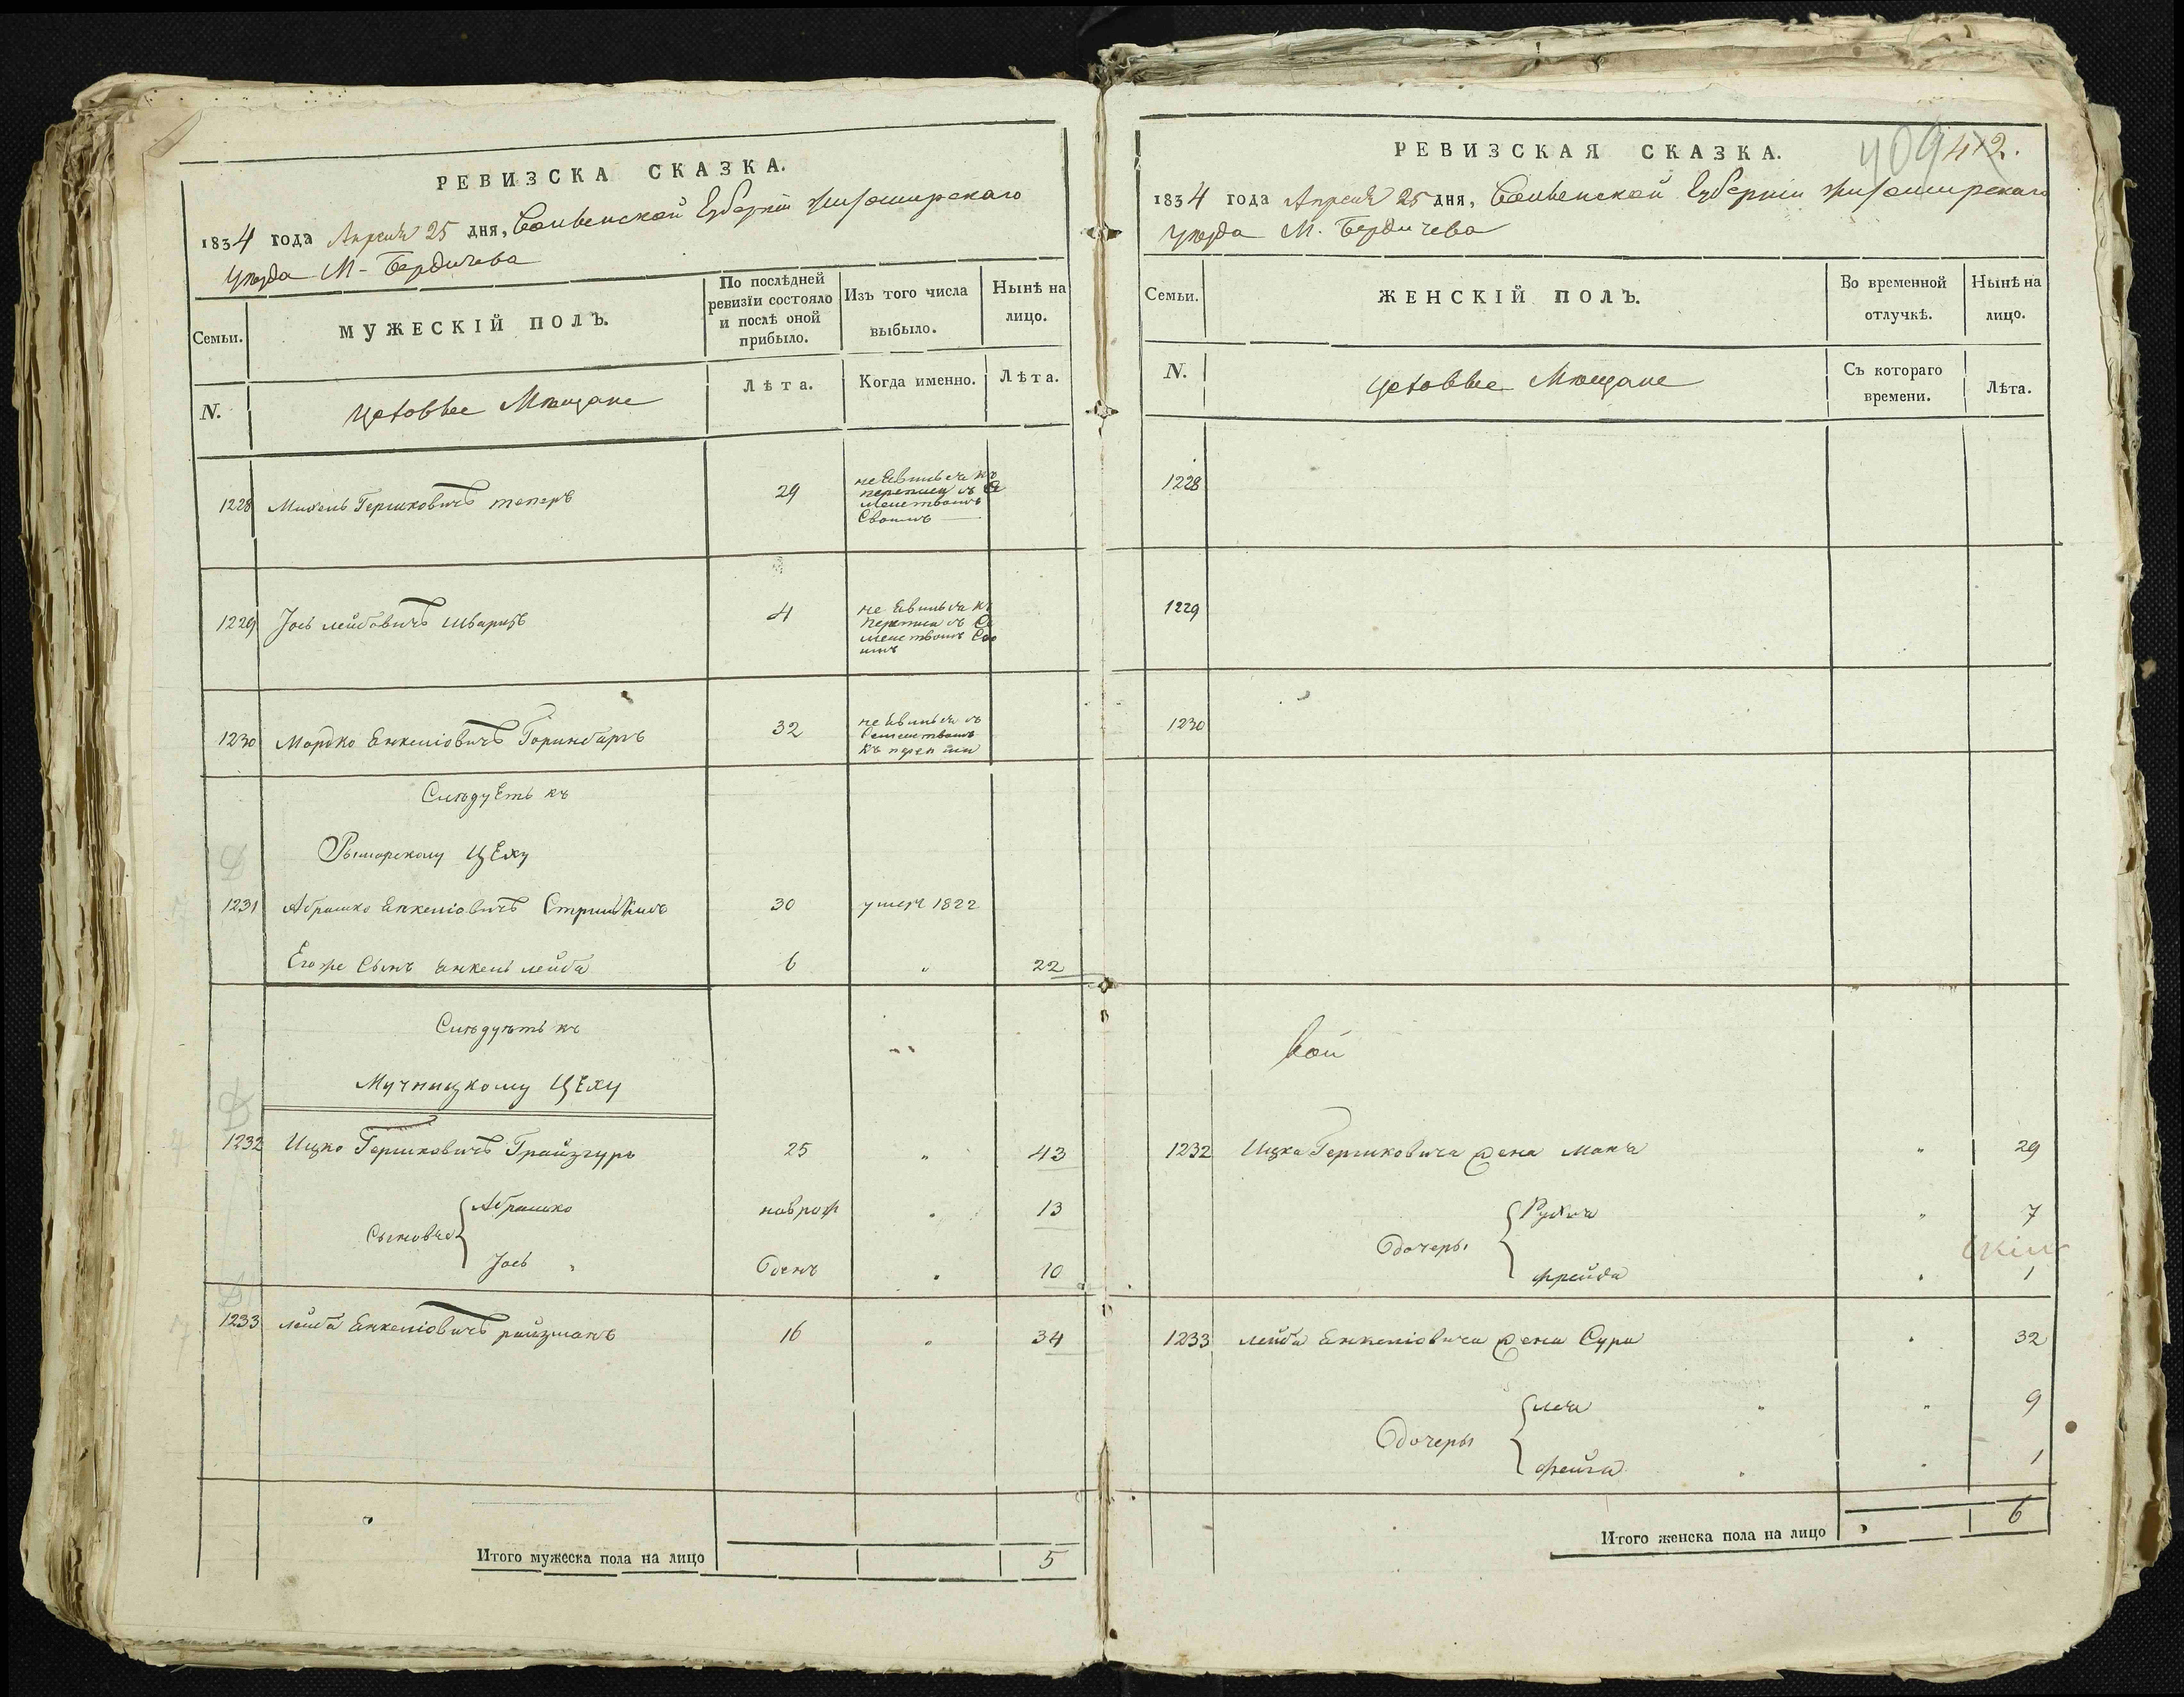 РЕВИЗСКА СКАЗКА.
1834 года Апреля 25 дня, Волынской Губерніи Житомирскаго
Уезда М- Бердичева
Семьи.
МУЖЕСКІЙ ПОЛЪ.
По послѣдней
ревизіи состояло
и послѣ оной
прибыло.
Изъ того числа
выбыло.
Нынѣ на
лицо.
N.
Цеховые Мещане
Лѣта.
Когда именно.
Лѣта.
1228 Михель Гершковичъ 29
не Евилься къ
переписи съ Се
меиствомъ
Своимъ
1229 Іось лейбовичъ шварцъ 4
не Евилься къ
Переписи съ Се
меиствомъ Сво
имъ
1230 Мордко Енкеліовичъ 32
не Евилься съ
Семеиствомъ
къ переписи
СлѣдуЕтъ къ
Рымарскому ЦЕху
1231 Абрамко Енкеліовичъ 30 умеръ 1822
Егоже Сынъ Янкель лейба 6 " 22
Слѣдуѣтъ къ
Мучницкому ЦЕху
1232 Ицко Гершковичъ Грайзгуръ 25 " 43
Сыновья
Абрамко новрож " 13
Іось " Оденъ " 10
1233 лейба Енкеліовичъ райзманъ 16 " 34
Итого мужеска пола на лицо 5
РЕВИЗСКАЯ СКАЗКА.
409 412.
1834 года Апреля 25 дня, Волынской Губерніи Житомирскаго
Уезда М. Бердичева
Семьи.
ЖЕНСКІЙ ПОЛЪ.
Во временной
отлучкѣ.
Нынѣ на
лицо.
N.
Цеховые Мещане
Съ котораго
времени.
Лѣта.
1228
1229
1230
вой
1232 Ицка Гершковича жена " 29
Дочеры
Рухля " 7
фрейда " 1
1233 лейба Енкеліовича жена Сура " 32
Дочеры
лея " " 9
фейга " " 1
Итого женска пола на лицо " 6